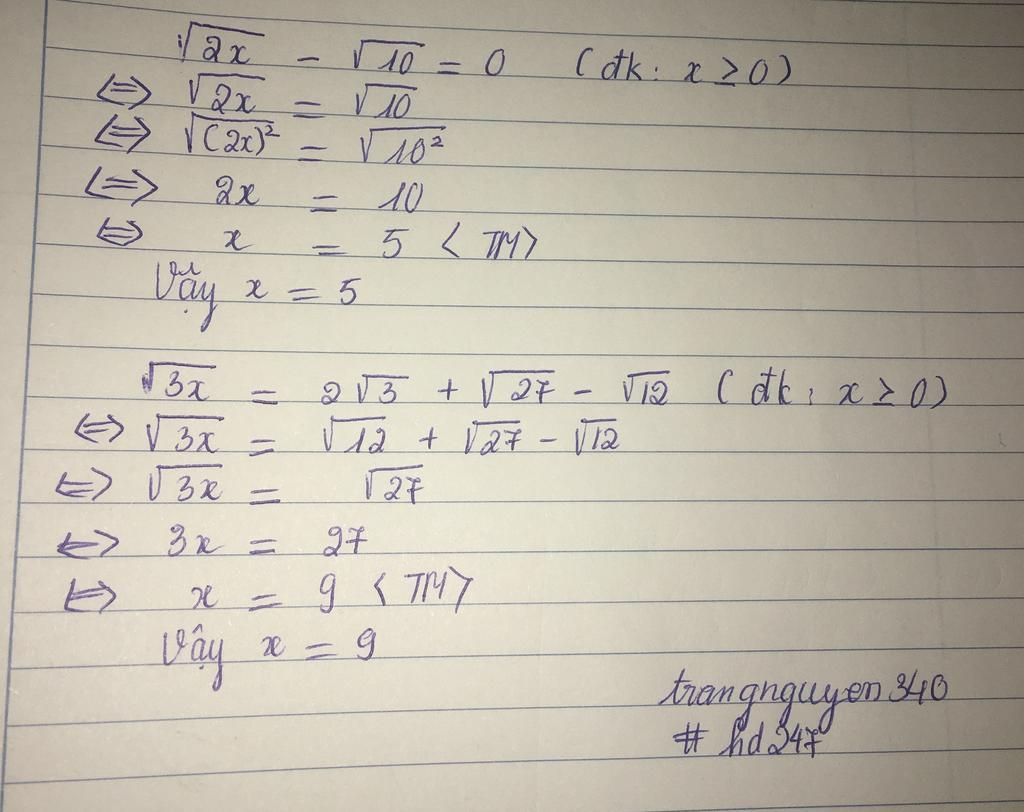 √2x - √10 = 0 (đk: x ≥ 0)
⇔ √2x = √10
⇔ √(2x)² = √10²
⇔ 2x = 10
⇔ x = 5 <TM>
Vậy x = 5
√3x = 2√3 + √27 - √12 (đk: x ≥ 0)
⇔ √3x = √12 + √27 - √12
⇔ √3x = √27
⇔ 3x = 27
⇔ x = 9 <TM>
Vậy x = 9
trangnguyen340
# hd247